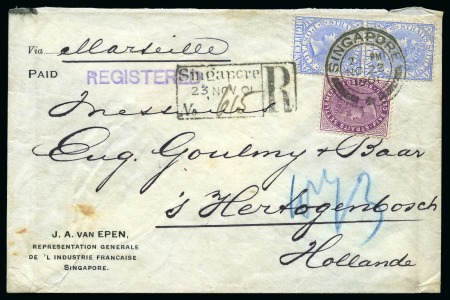 Via Marseille
PAID
REGISTERED
Singapore
23 NOV 01
No 615
R
SINGAPORE
Messieurs
Eug. Goulmy & Baar
's Hertogenbosch
Hollande
J. A. VAN EPEN,
REPRESENTATION GENERALE
DE 'L INDUSTRIE FRANCAISE
SINGAPORE.